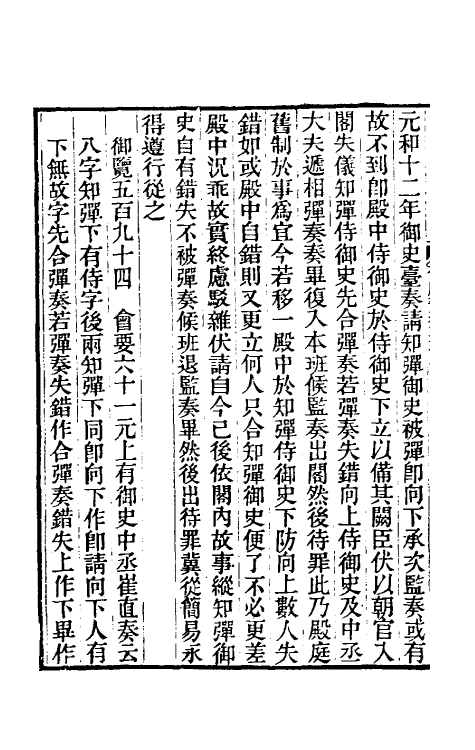 元和十二年御史臺奏請知彈御史被彈卽向下承次監奏或有
故不到卽殿中侍御史於侍御史下立以備其闕臣伏以朝官入
閣失儀知彈侍御史先合彈奏若彈奏失錯向上侍御史及中丞
大夫遞相彈奏奏畢復入本班候監奏出閤然後待罪此乃殿庭
舊制於事爲宜今若移一殿中於知彈侍御史下防向上數人失
錯如或殿中自錯則又更立何人只合知彈御史便了不必更差
殿中況乖故實終慮駮雜伏請自今已後依閣內故事縱知彈御
史自有錯失不被彈奏候班退監奏畢然後出待罪冀從簡易永
得遵行從之
御覽五百九十四　會要六十一元上有御史中丞崔直奏云
八字知彈下有侍字後兩知彈下同卽向下作卽請向下人有
下無故字先合彈奏若彈奏失錯作合彈奏錯失上作下畢作